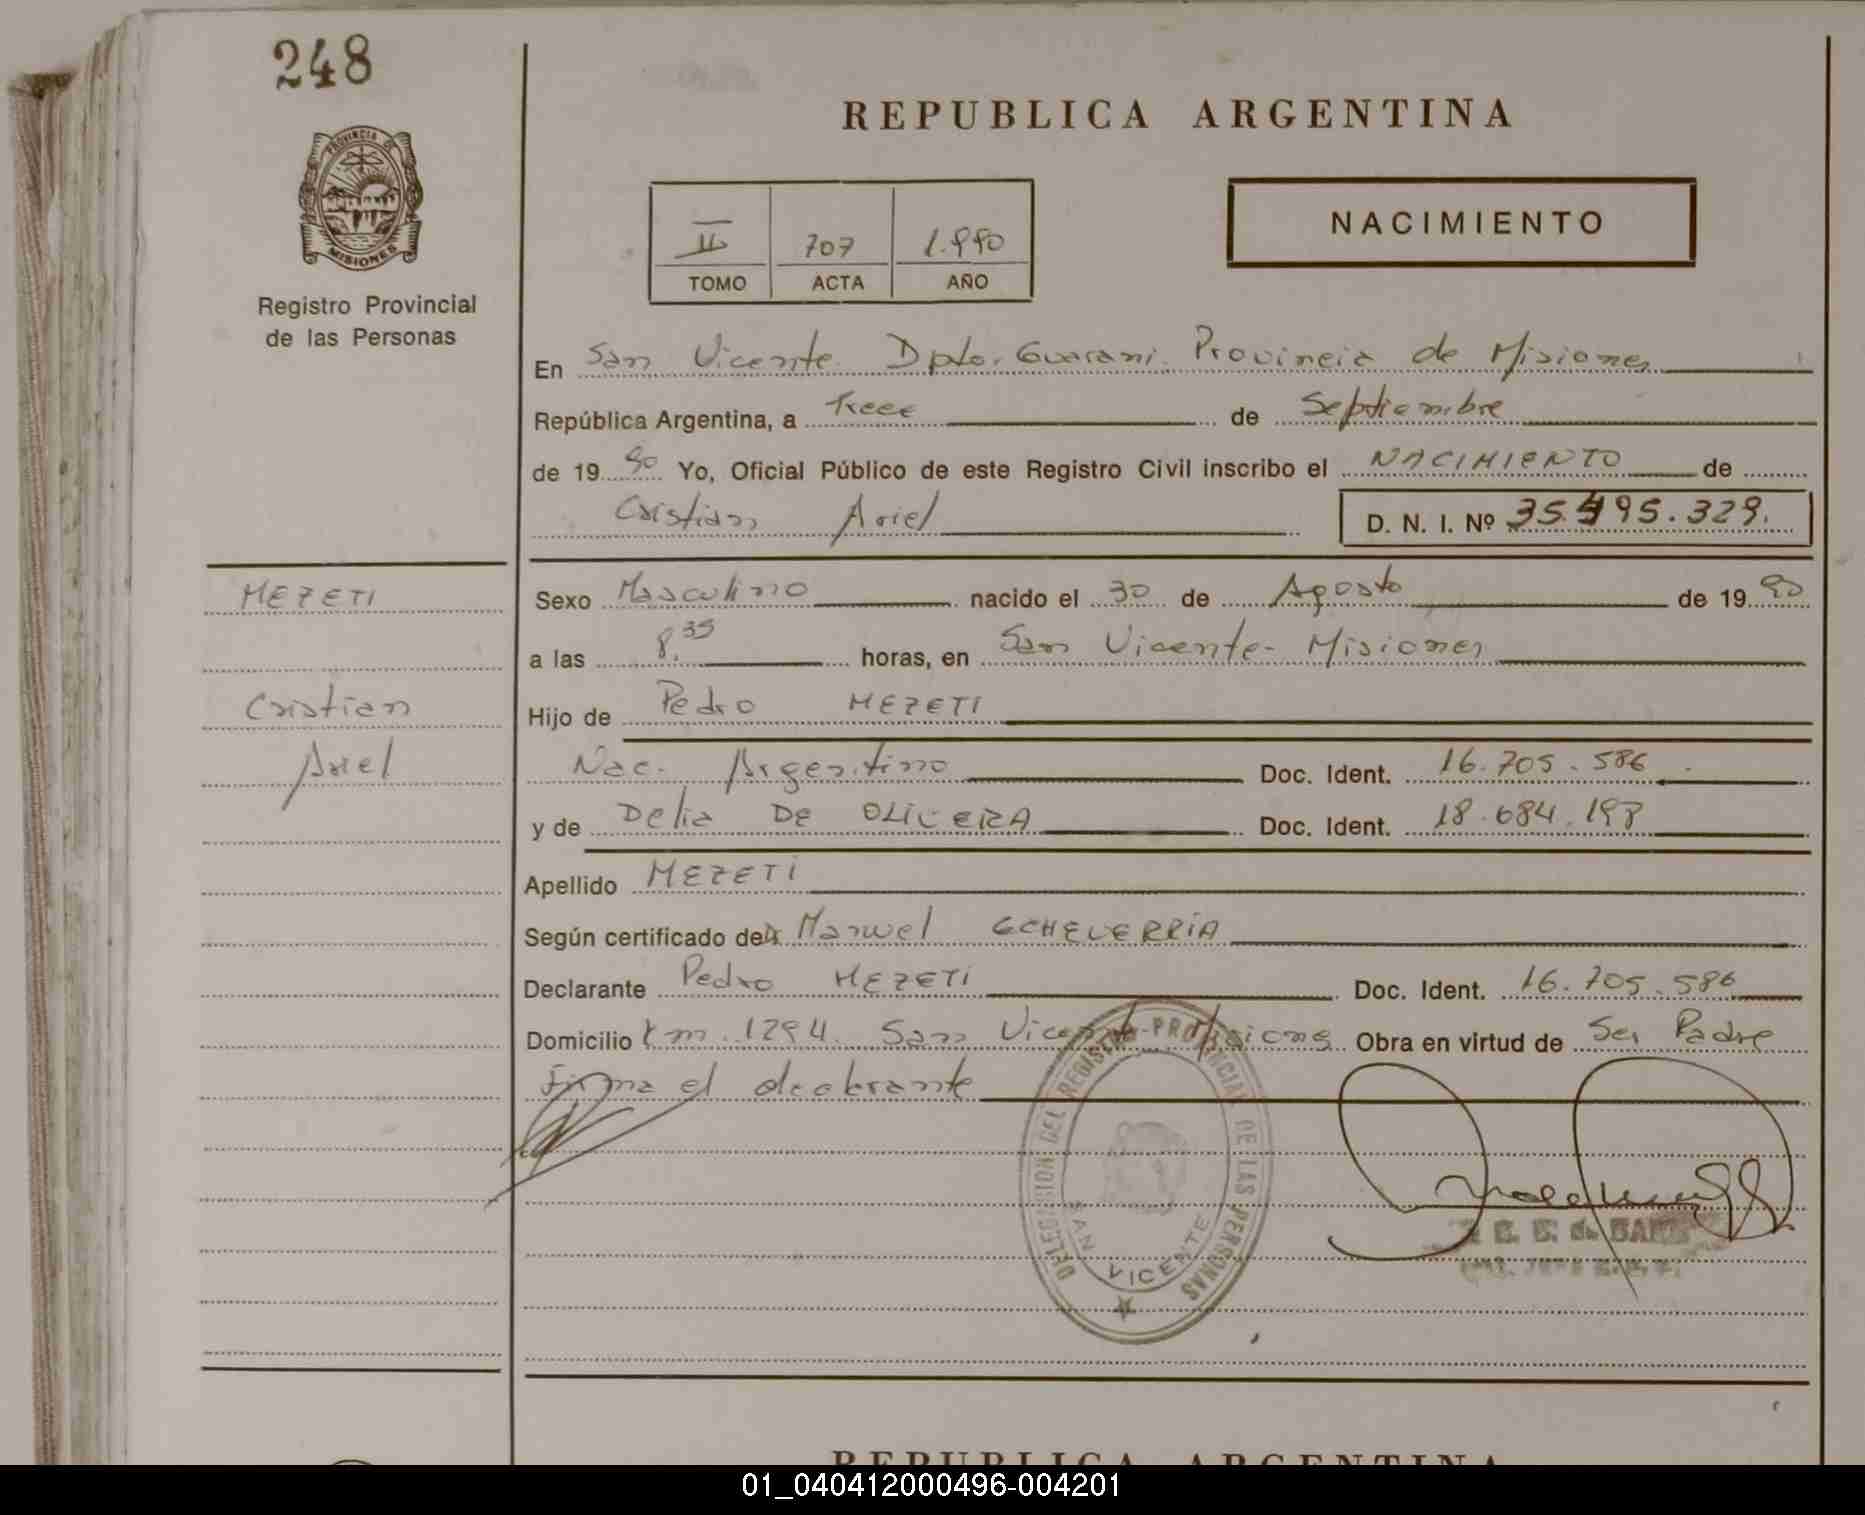 248
REPUBLICA ARGENTINA
PROVINCIA DE
MISIONES
Registro Provincial
de las Personas
II 707 1.990
TOMO ACTA AÑO
NACIMIENTO
En San Vicente. Dpto. Guarani. Provincia de Misiones
República Argentina, a Trece de Septiembre
de 1990 Yo, Oficial Público de este Registro Civil inscribo el NACIMIENTO de
Cristian Ariel D. N. I. Nº 35.495.329.
MEZETI
Cristian
Ariel
Sexo Masculino nacido el 30 de Agosto de 1990
a las 8.35 horas, en San Vicente - Misiones
Hijo de Pedro MEZETI
Nac. Argentino Doc. Ident. 16.705.586
y de Delia DE OLIVERA Doc. Ident. 18.684.198
Apellido MEZETI
Según certificado de Manuel ECHEVERRIA
Declarante Pedro MEZETI Doc. Ident. 16.705.586
Domicilio Km. 1294. San Vicente Misiones Obra en virtud de Ser Padre
Firma el declarante
DELEGACION DEL REGISTRO PROVINCIAL DE LAS PERSONAS
SAN VICENTE
REPUBLICA ARGENTINA
01_040412000496-004201